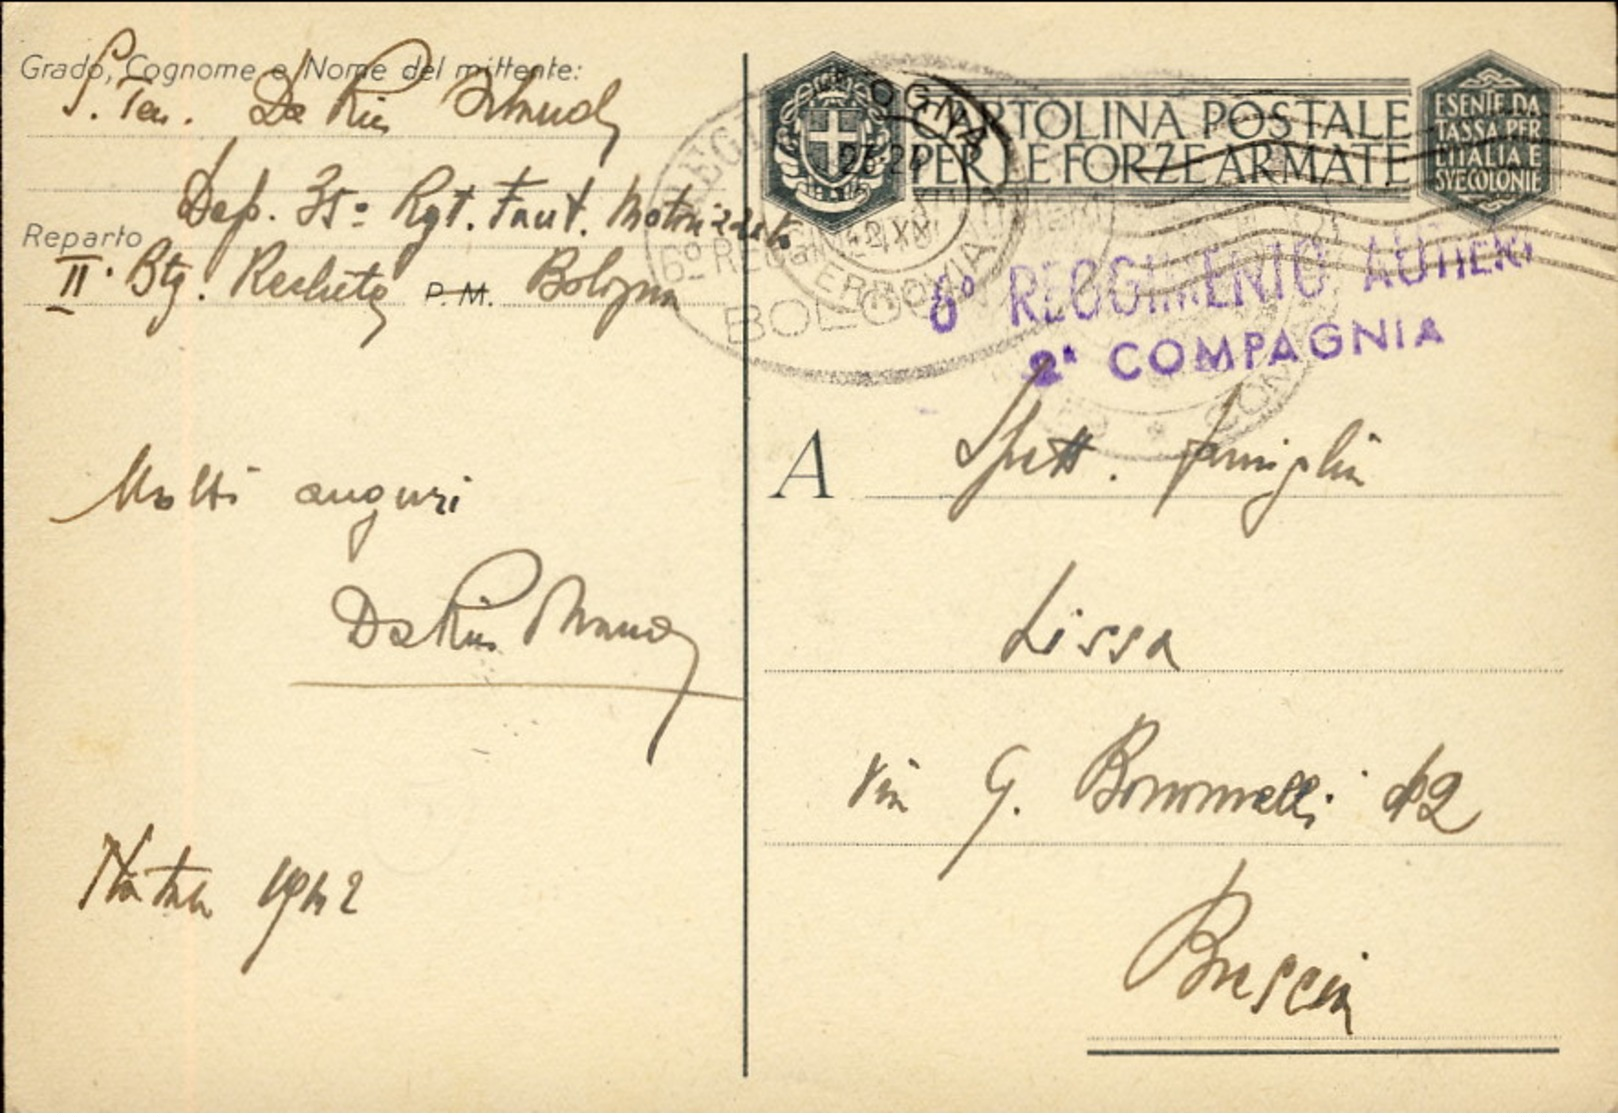 Grado, Cognome e Nome del mittente:
S. Ten. De Rin
Dep. 35º Rgt. Fant. Motorizzato
Reparto
II. Btg. Reclute P.M. Bologna
Molti auguri
De Rin
Natale 1942
CARTOLINA POSTALE
PER LE FORZE ARMATE
ESENTE DA
TASSA PER
L'ITALIA E
SUE COLONIE
BOLOGNA
FERROVIA
6º REGGIMENTO AUTIERI
2ª COMPAGNIA
A Spett. famiglia
Lissa
Via G. Bonomelli
Brescia